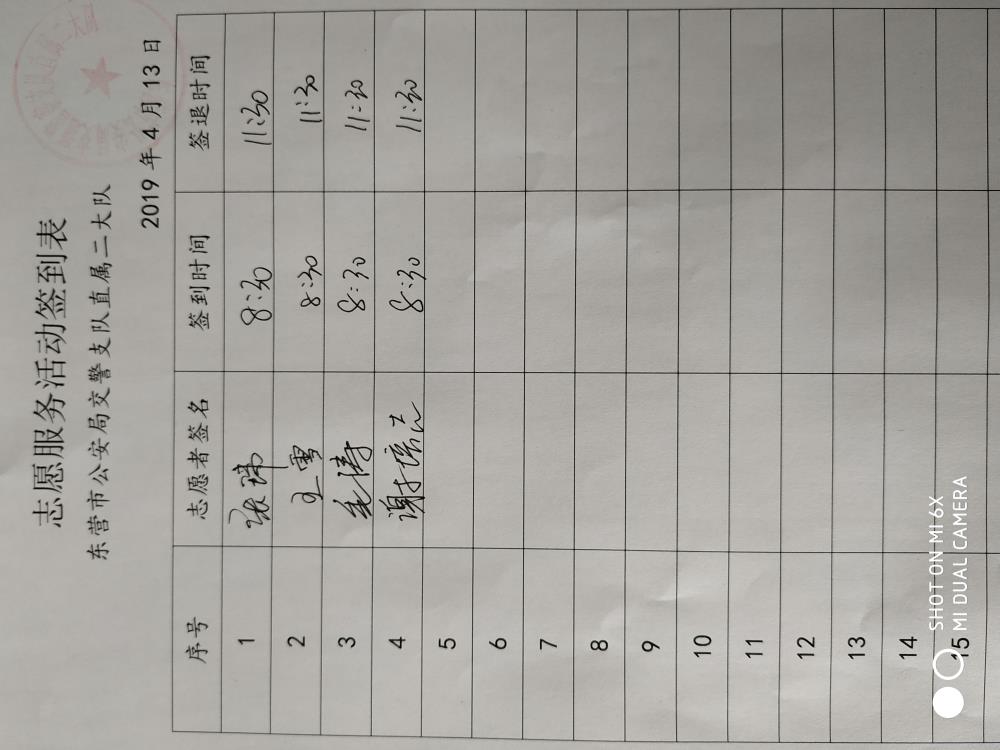 志愿服务活动签到表
东营市公安局交警支队直属二大队
2019 年 4 月 13 日
序号 志愿者签名 签到时间 签退时间
1 张玮 8:30 11:30
2 王雪 8:30 11:30
3 毛涛 8:30 11:30
4 8:30 11:30
5
6
7
8
9
10
11
12
13
14
15
SHOT ON MI 6X
MI DUAL CAMERA